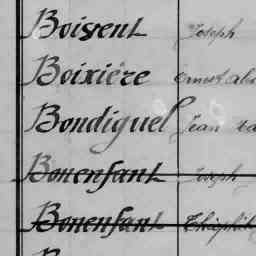 Boissent Joseph
Boixière Ernest
Bondiguel Jean
Bonenfant Joseph
Bonenfant Théophile